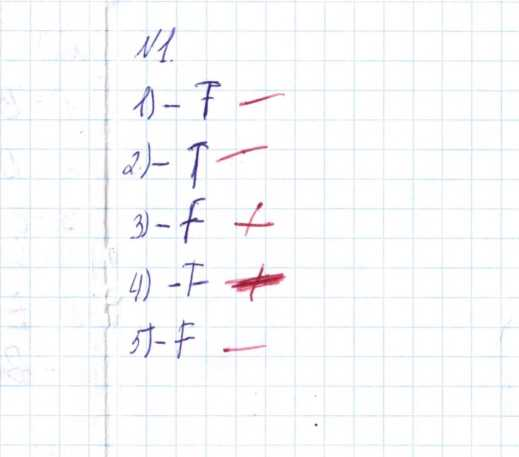 N1.
1) - F —
2) - T —
3) - F +
4) - F
5) - F —